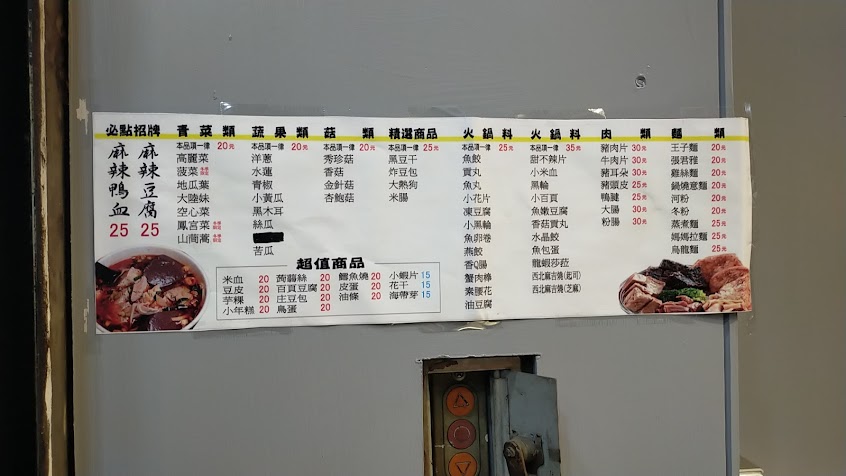 必點招牌
麻辣鴨血
25
麻辣豆腐
25
青菜類
本品項一律 20元
高麗菜
菠菜
地瓜葉
大陸妹
空心菜
鳳宮菜
山茼蒿
蔬果類
本品項一律 20元
洋蔥
水蓮
青椒
小黃瓜
黑木耳
絲瓜
苦瓜
菇類
本品項一律 20元
秀珍菇
香菇
金針菇
杏鮑菇
精選商品
本品項一律 25元
黑豆干
炸豆包
大熱狗
米腸
火鍋料
本品項一律 25元
魚餃
貢丸
魚丸
小花片
凍豆腐
小黑輪
魚卵卷
燕餃
香腸
蟹肉棒
素腰花
油豆腐
火鍋料
本品項一律 35元
甜不辣片
小米血
黑輪
小百頁
魚嫩豆腐
香菇貢丸
水晶餃
魚包蛋
龍蝦莎菈
西北麻吉燒(起司)
西北麻吉燒(芝麻)
肉類
豬肉片 30元
牛肉片 30元
豬耳朵 30元
豬頭皮 25元
鴨腱 25元
大腸 30元
粉腸 30元
麵類
王子麵 20元
張君雅 20元
雞絲麵 20元
鍋燒意麵 20元
河粉 20元
冬粉 20元
蒸煮麵 25元
媽媽拉麵 25元
烏龍麵 25元
超值商品
米血 20
豆皮 20
芋粿 20
小年糕 20
蒟蒻絲 20
百頁豆腐 20
庄豆包 20
鳥蛋 20
鱈魚燒 20
皮蛋 20
油條 20
小蝦片 15
花干 15
海帶芽 15